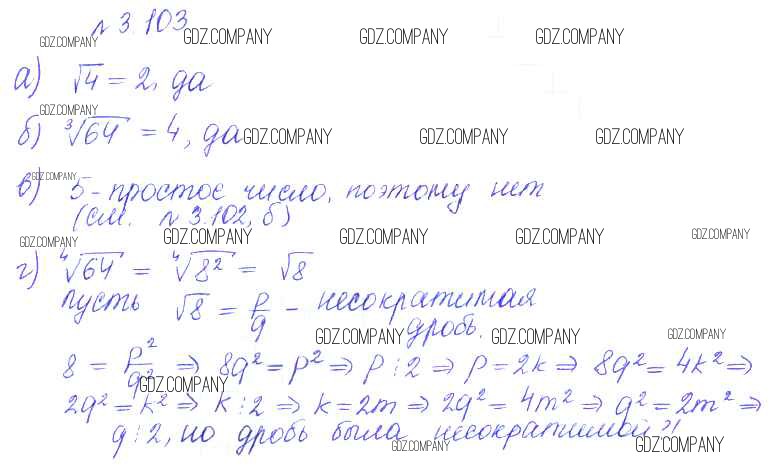 № 3.103
GDZ.COMPANY GDZ.COMPANY GDZ.COMPANY GDZ.COMPANY
а) √4 = 2, да
GDZ.COMPANY
б) ³√64 = 4, да
GDZ.COMPANY GDZ.COMPANY GDZ.COMPANY
GDZ.COMPANY
в) 5 - простое число, поэтому нет
(см. № 3.102, б)
GDZ.COMPANY GDZ.COMPANY GDZ.COMPANY GDZ.COMPANY GDZ.COMPANY
г) ⁴√64 = ⁴√8² = √8
пусть √8 = p/q - несократимая
дробь.
GDZ.COMPANY GDZ.COMPANY GDZ.COMPANY
8 = p²/q² ⇒ 8q² = p² ⇒ p ⋮ 2 ⇒ p = 2k ⇒ 8q² = 4k² ⇒
GDZ.COMPANY
2q² = k² ⇒ k ⋮ 2 ⇒ k = 2m ⇒ 2q² = 4m² ⇒ q² = 2m² ⇒
q ⋮ 2, но дробь была несократимой ?!
GDZ.COMPANY GDZ.COMPANY